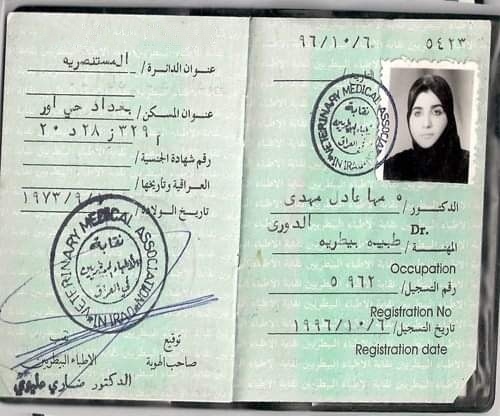 ٩٦/١٠/٦
٥٤٢٣
التاريخ /
VETERINARY MEDICAL ASSOCIATION
IN IRAQ
نقابة
الأطباء البيطريين
في العراق
الدكتور / مها عادل مهدي
الدوري
Dr.
المهنة / طبيبه بيطريه
Occupation
رقم التسجيل / ٥٩٦٢
Registration No
تاريخ التسجيل / ١٩٩٦/١٠/٦
Registration date
عنوان الدائرة / المستنصريه
عنوان المسكن / بغداد حي اور
م ٣٢٩ ز ٢٨ د ٢٠
رقم شهادة الجنسية /
العراقية وتاريخها /
تاريخ الولادة / ١٩٧٣/٩/
VETERINARY MEDICAL ASSOCIATION
IN IRAQ
نقابة
الأطباء البيطريين
في العراق
توقيع
صاحب الهوية
نقيب
الاطباء البيطريين
الدكتور